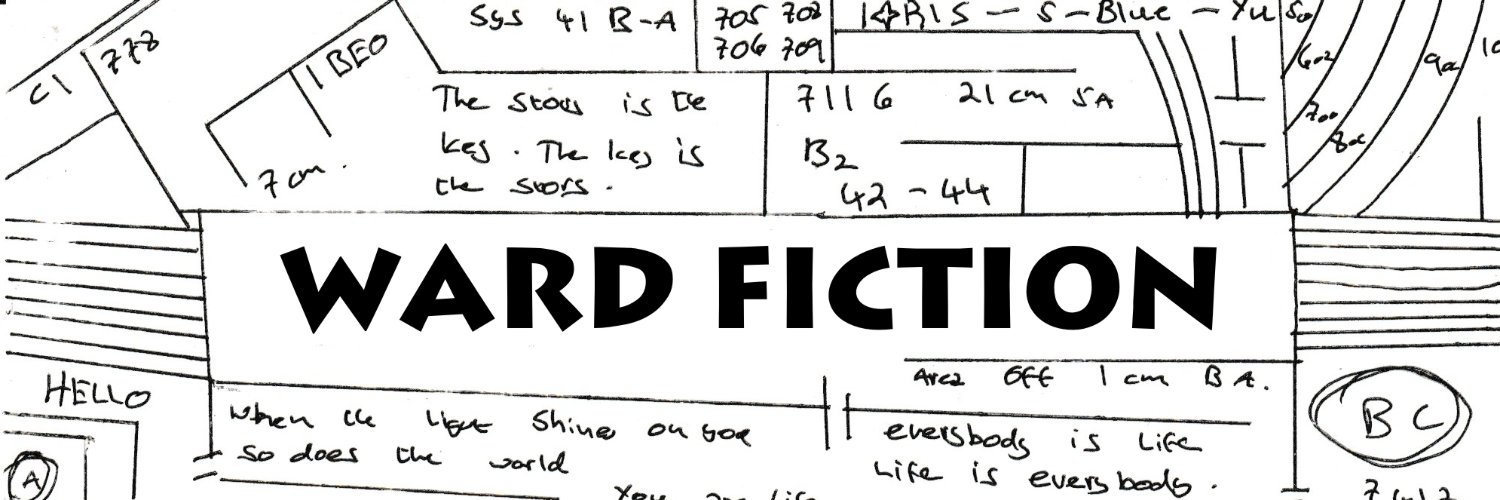 Sys 41 B-A
705 708
706 709
C1
778
1 BEO
7 cm.
The story is the
key. The key is
the story.
7116 21 cm SA
B2
42 - 44
602
700
WARD FICTION
HELLO
A
Area off 1 cm B A.
When the light shines on you
so does the world
everybody is life
Life is everybody.
You are life
B C